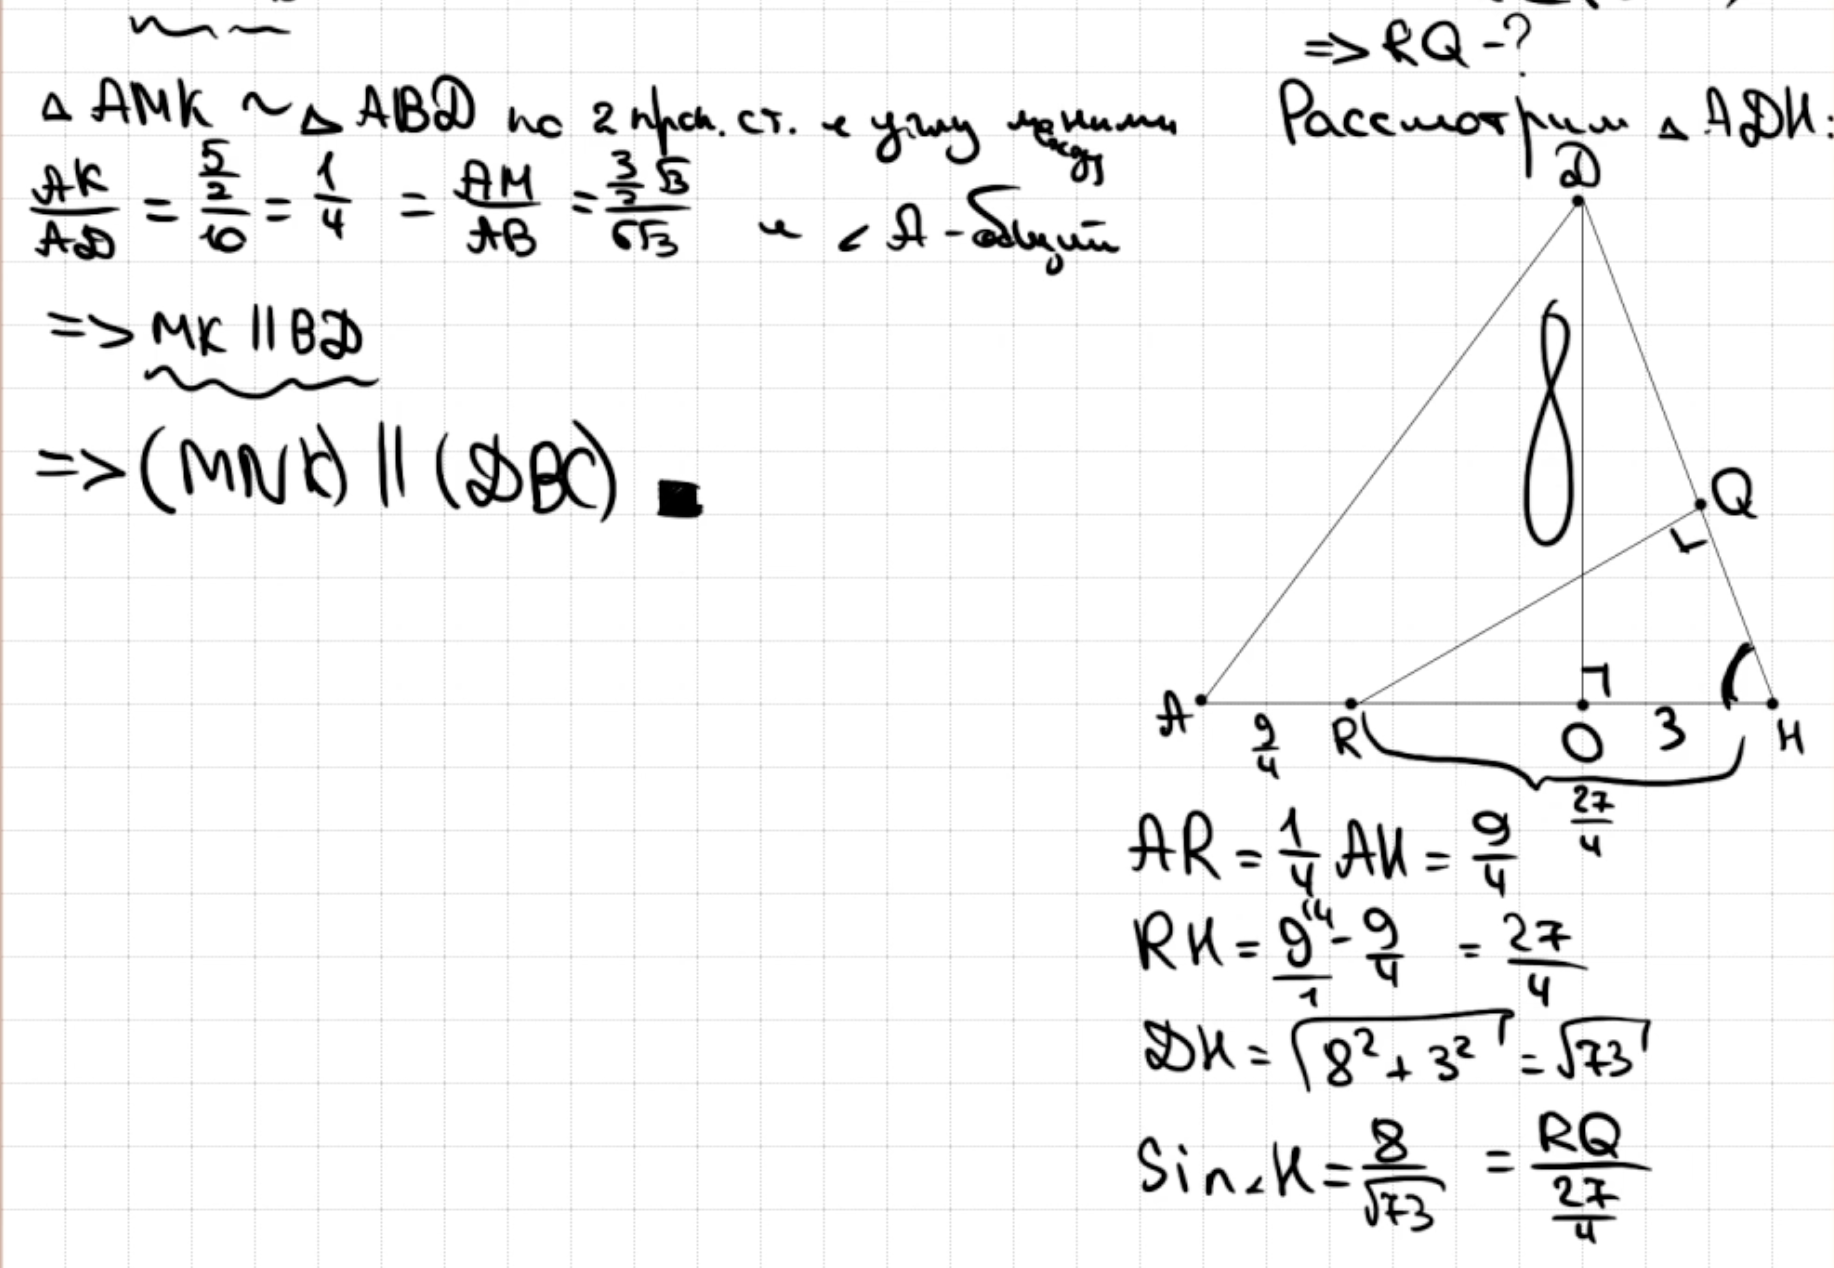 △ AMK ~ △ ABD по 2 проп. ст. и углу между ними
AK/AD = (5/2)/10 = 1/4 = AM/AB = (3/2 √3)/(6√3) и ∠A - общий
=> MK || BD
=> (MNK) || (DBC) ■
=> RQ -?
Рассмотрим △ ADH:
D
8
Q
A
9/4
R
O
3
H
27/4
AR = 1/4 AH = 9/4
RH = 9/1 ⁽⁴ - 9/4 = 27/4
DH = √(8² + 3²) = √73
Sin∠H = 8/√73 = RQ/(27/4)